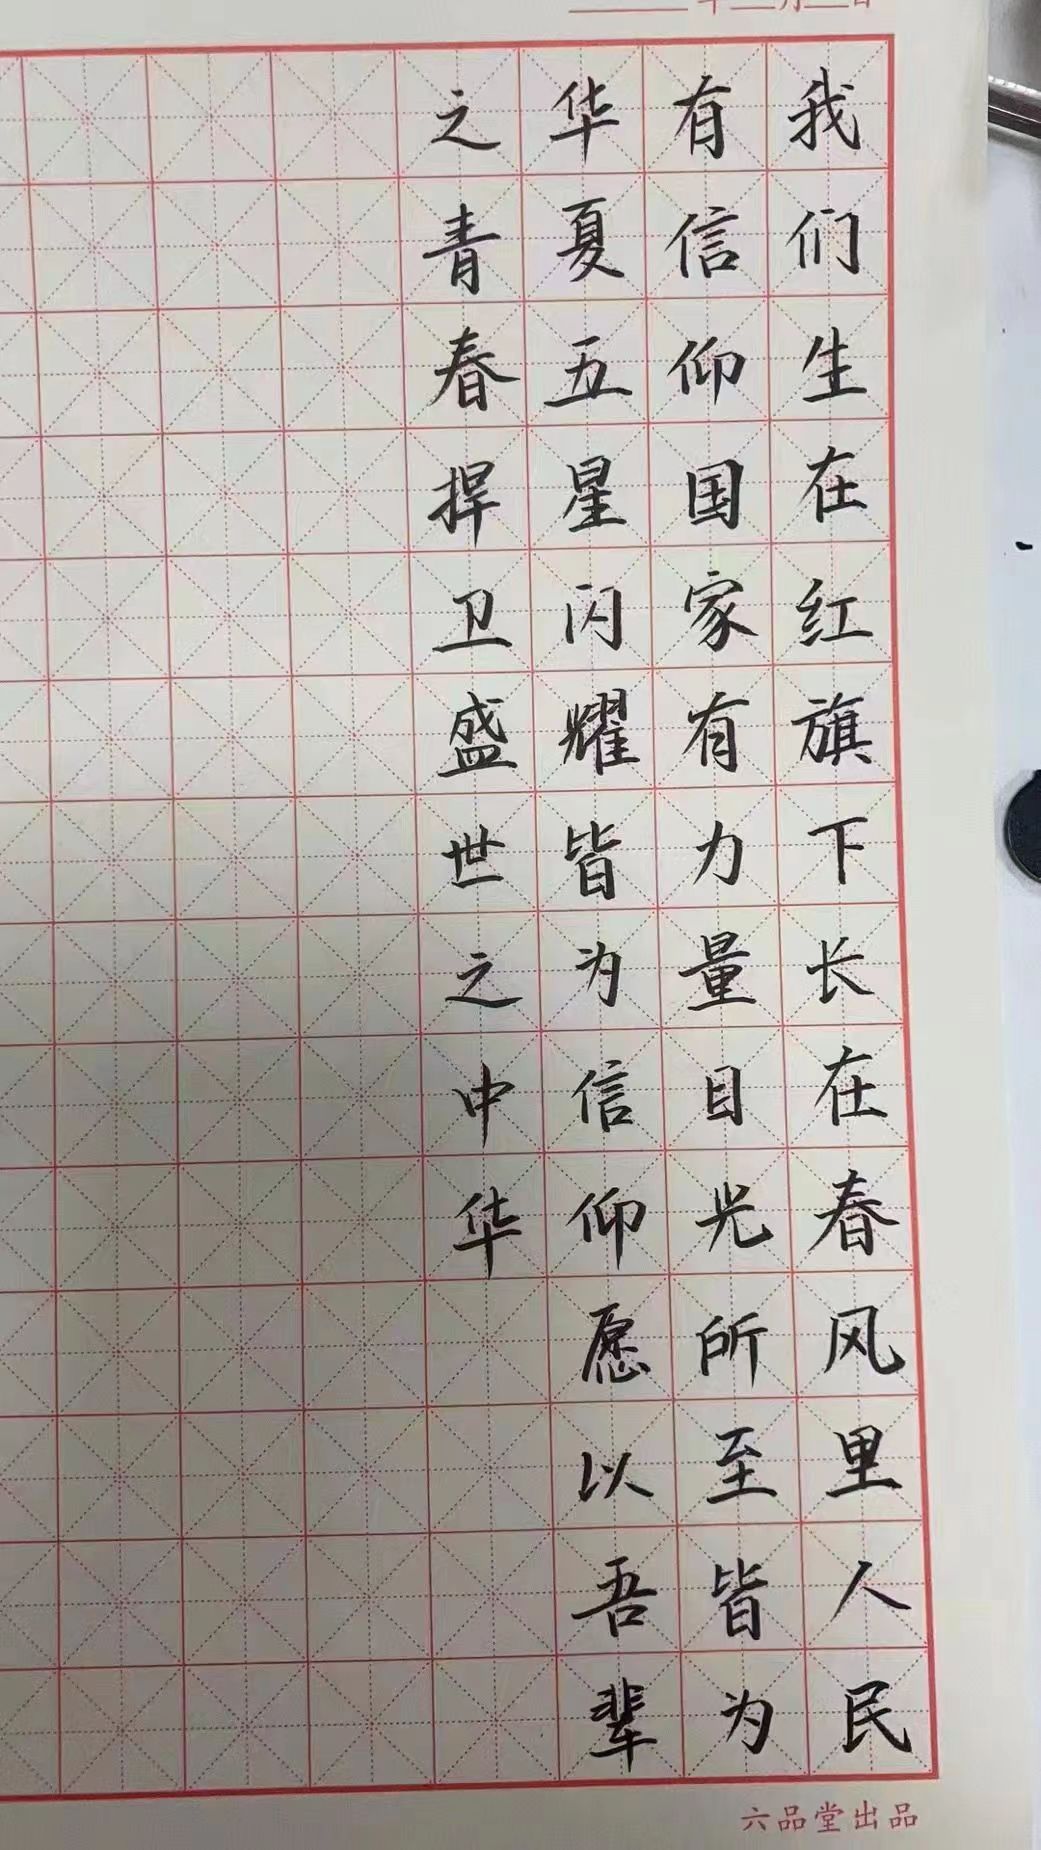 年 月 日
我们生在红旗下长在春风里人民
有信仰国家有力量目光所至皆为
华夏五星闪耀皆为信仰愿以吾辈
之青春捍卫盛世之中华
六品堂出品